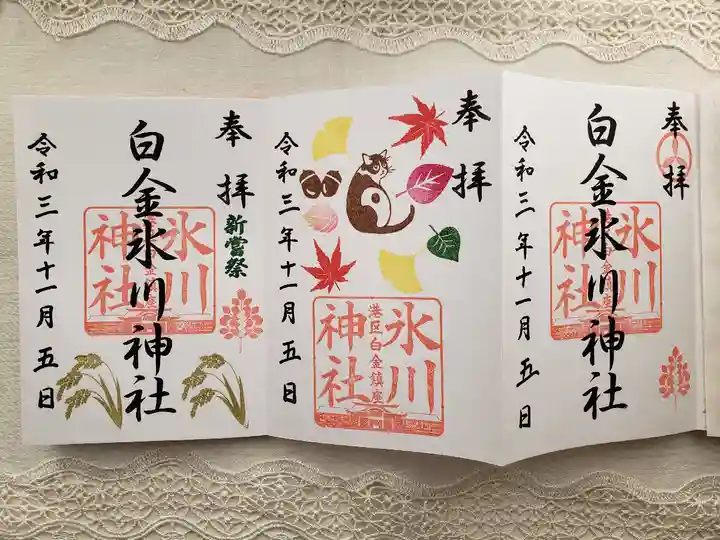 奉拝
白金氷川神社
氷川神社
新嘗祭
令和三年十一月五日
奉拝
氷川神社
港区白金鎮座
令和三年十一月五日
奉拝
白金氷川神社
氷川神社
令和三年十一月五日